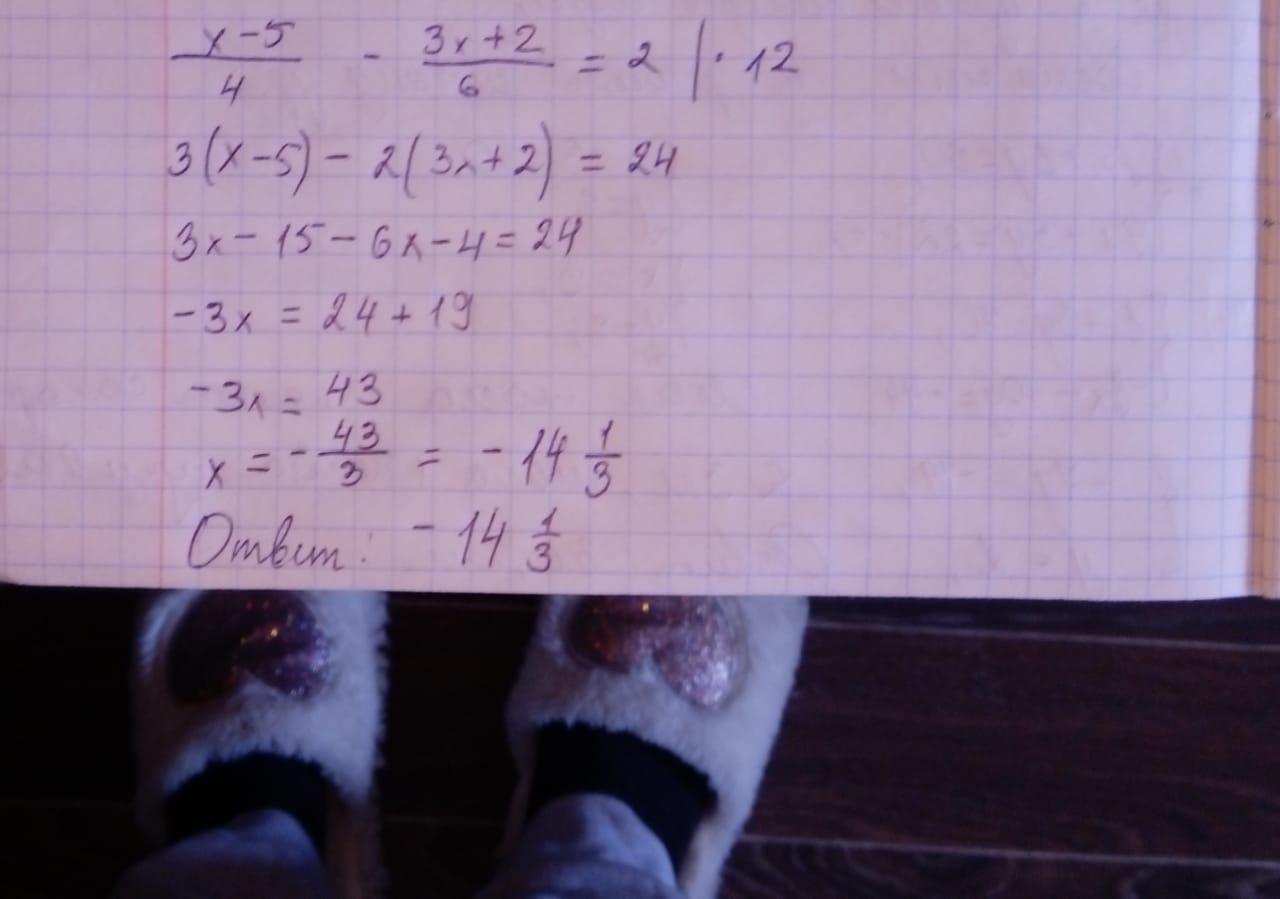 x-5/4 - 3x+2/6 = 2 | · 12
3(x-5) - 2(3x+2) = 24
3x - 15 - 6x - 4 = 24
-3x = 24 + 19
-3x = 43
x = - 43/3 = - 14 1/3
Ответ: - 14 1/3